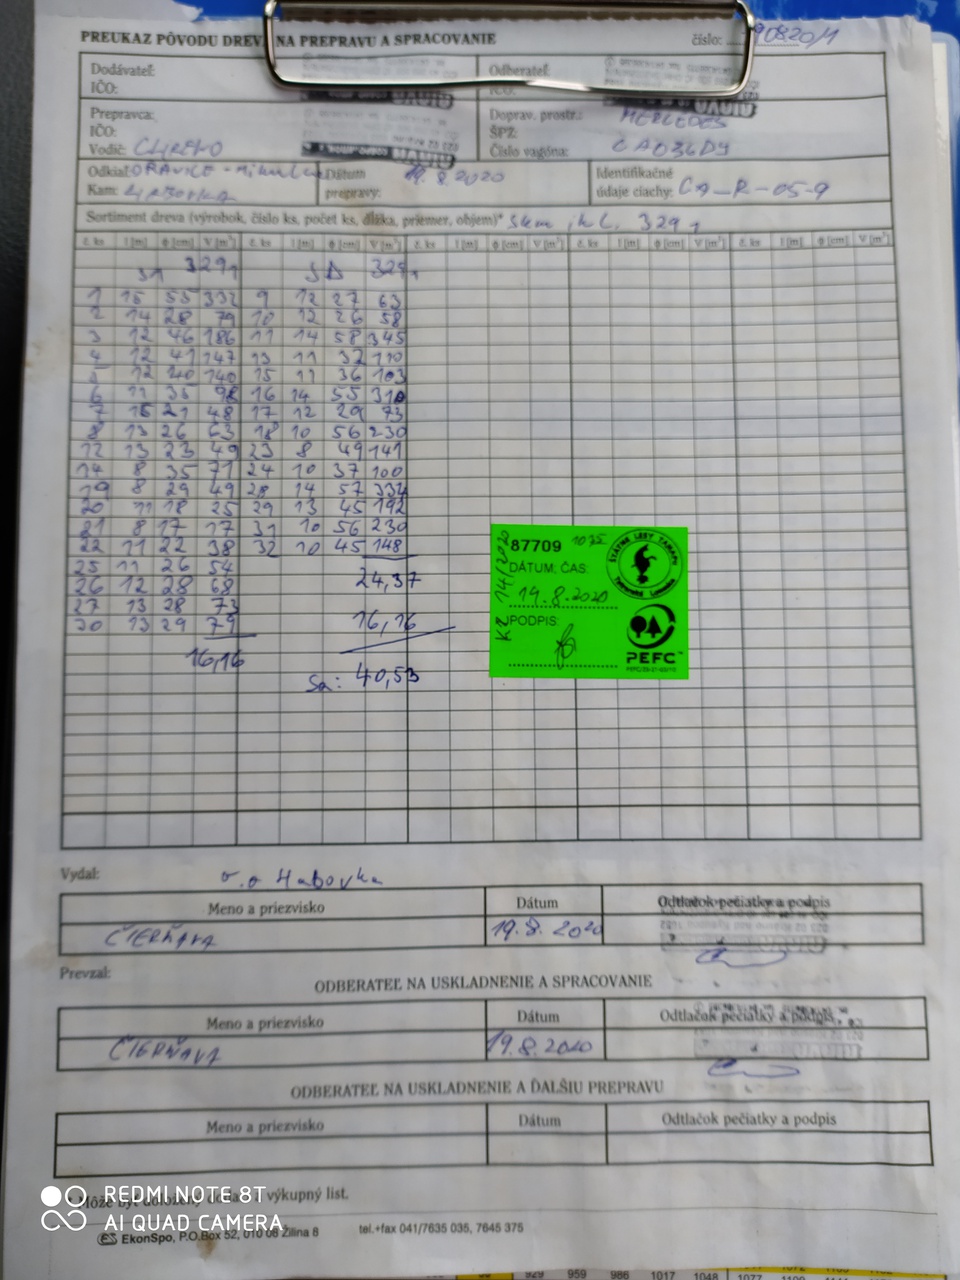 PREUKAZ PÔVODU DREVA NA PREPRAVU A SPRACOVANIE číslo: 90820/1
Dodávateľ: Odberateľ:
IČO: IČO:
Prepravca: Doprav. prostr.: MERCEDES
IČO: ŠPZ:
Vodič: Číslo vagóna: CA036DY
Odkiaľ: ORAVICE - Dátum prepravy: 19.8.2020 Identifikačné
Kam: údaje ciachy: CA-R-05-9
Sortiment dreva (výrobok, číslo ks, počet ks, dĺžka, priemer, objem)* 329
č. ks l [m] ϕ [cm] V [m³] č. ks l [m] ϕ [cm] V [m³] č. ks l [m] ϕ [cm] V [m³] č. ks l [m] ϕ [cm] V [m³] č. ks l [m] ϕ [cm] V [m³]
329 329
1 15 55 332 9 12 27 63
2 14 28 79 10 12 26 58
3 12 46 186 11 14 58 345
4 12 41 147 13 11 32 110
5 12 40 140 15 11 36 103
6 11 35 98 16 14 55 310
7 15 21 48 17 12 29 73
8 13 26 63 18 10 56 230
12 13 23 49 23 8 49 141
14 8 35 71 24 10 37 100
19 8 29 49 28 14 57 334
20 11 18 25 29 13 45 192
21 8 17 17 31 10 56 230
22 11 22 38 32 10 45 148
25 11 26 54
26 12 28 68 24,37
27 13 28 73
30 13 29 79 16,16
16,16
Sa: 40,53
87709 1035
ŠTÁTNE LESY TANAPu
Tatranská Lomnica
DÁTUM; ČAS:
19.8.2020
PODPIS:
KZ 14/2020
PEFC™
Vydal: o.o Habovka
Meno a priezvisko Dátum Odtlačok pečiatky a podpis
ČIERŇAVA 19.8.2020
Prevzal:
ODBERATEĽ NA USKLADNENIE A SPRACOVANIE
Meno a priezvisko Dátum Odtlačok pečiatky a podpis
ČIERŇAVA 19.8.2020
ODBERATEĽ NA USKLADNENIE A ĎALŠIU PREPRAVU
Meno a priezvisko Dátum Odtlačok pečiatky a podpis
* Môže byť doložený dodací, výkupný list.
REDMI NOTE 8T
AI QUAD CAMERA
EkonSpo, P.O.Box 52, 010 08 Žilina 8 tel.+fax 041/7635 035, 7645 375
929 959 986 1017 1048 1077 1109